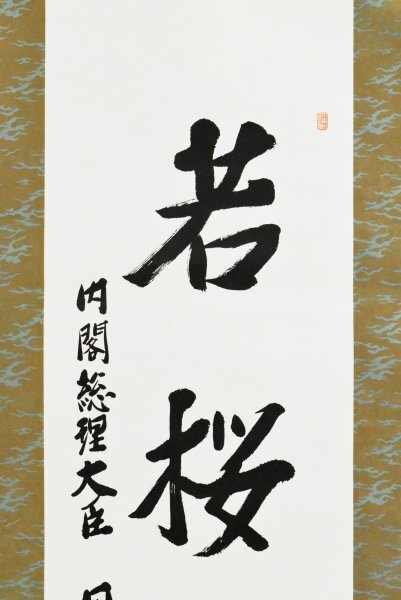 若桜
内閣総理大臣